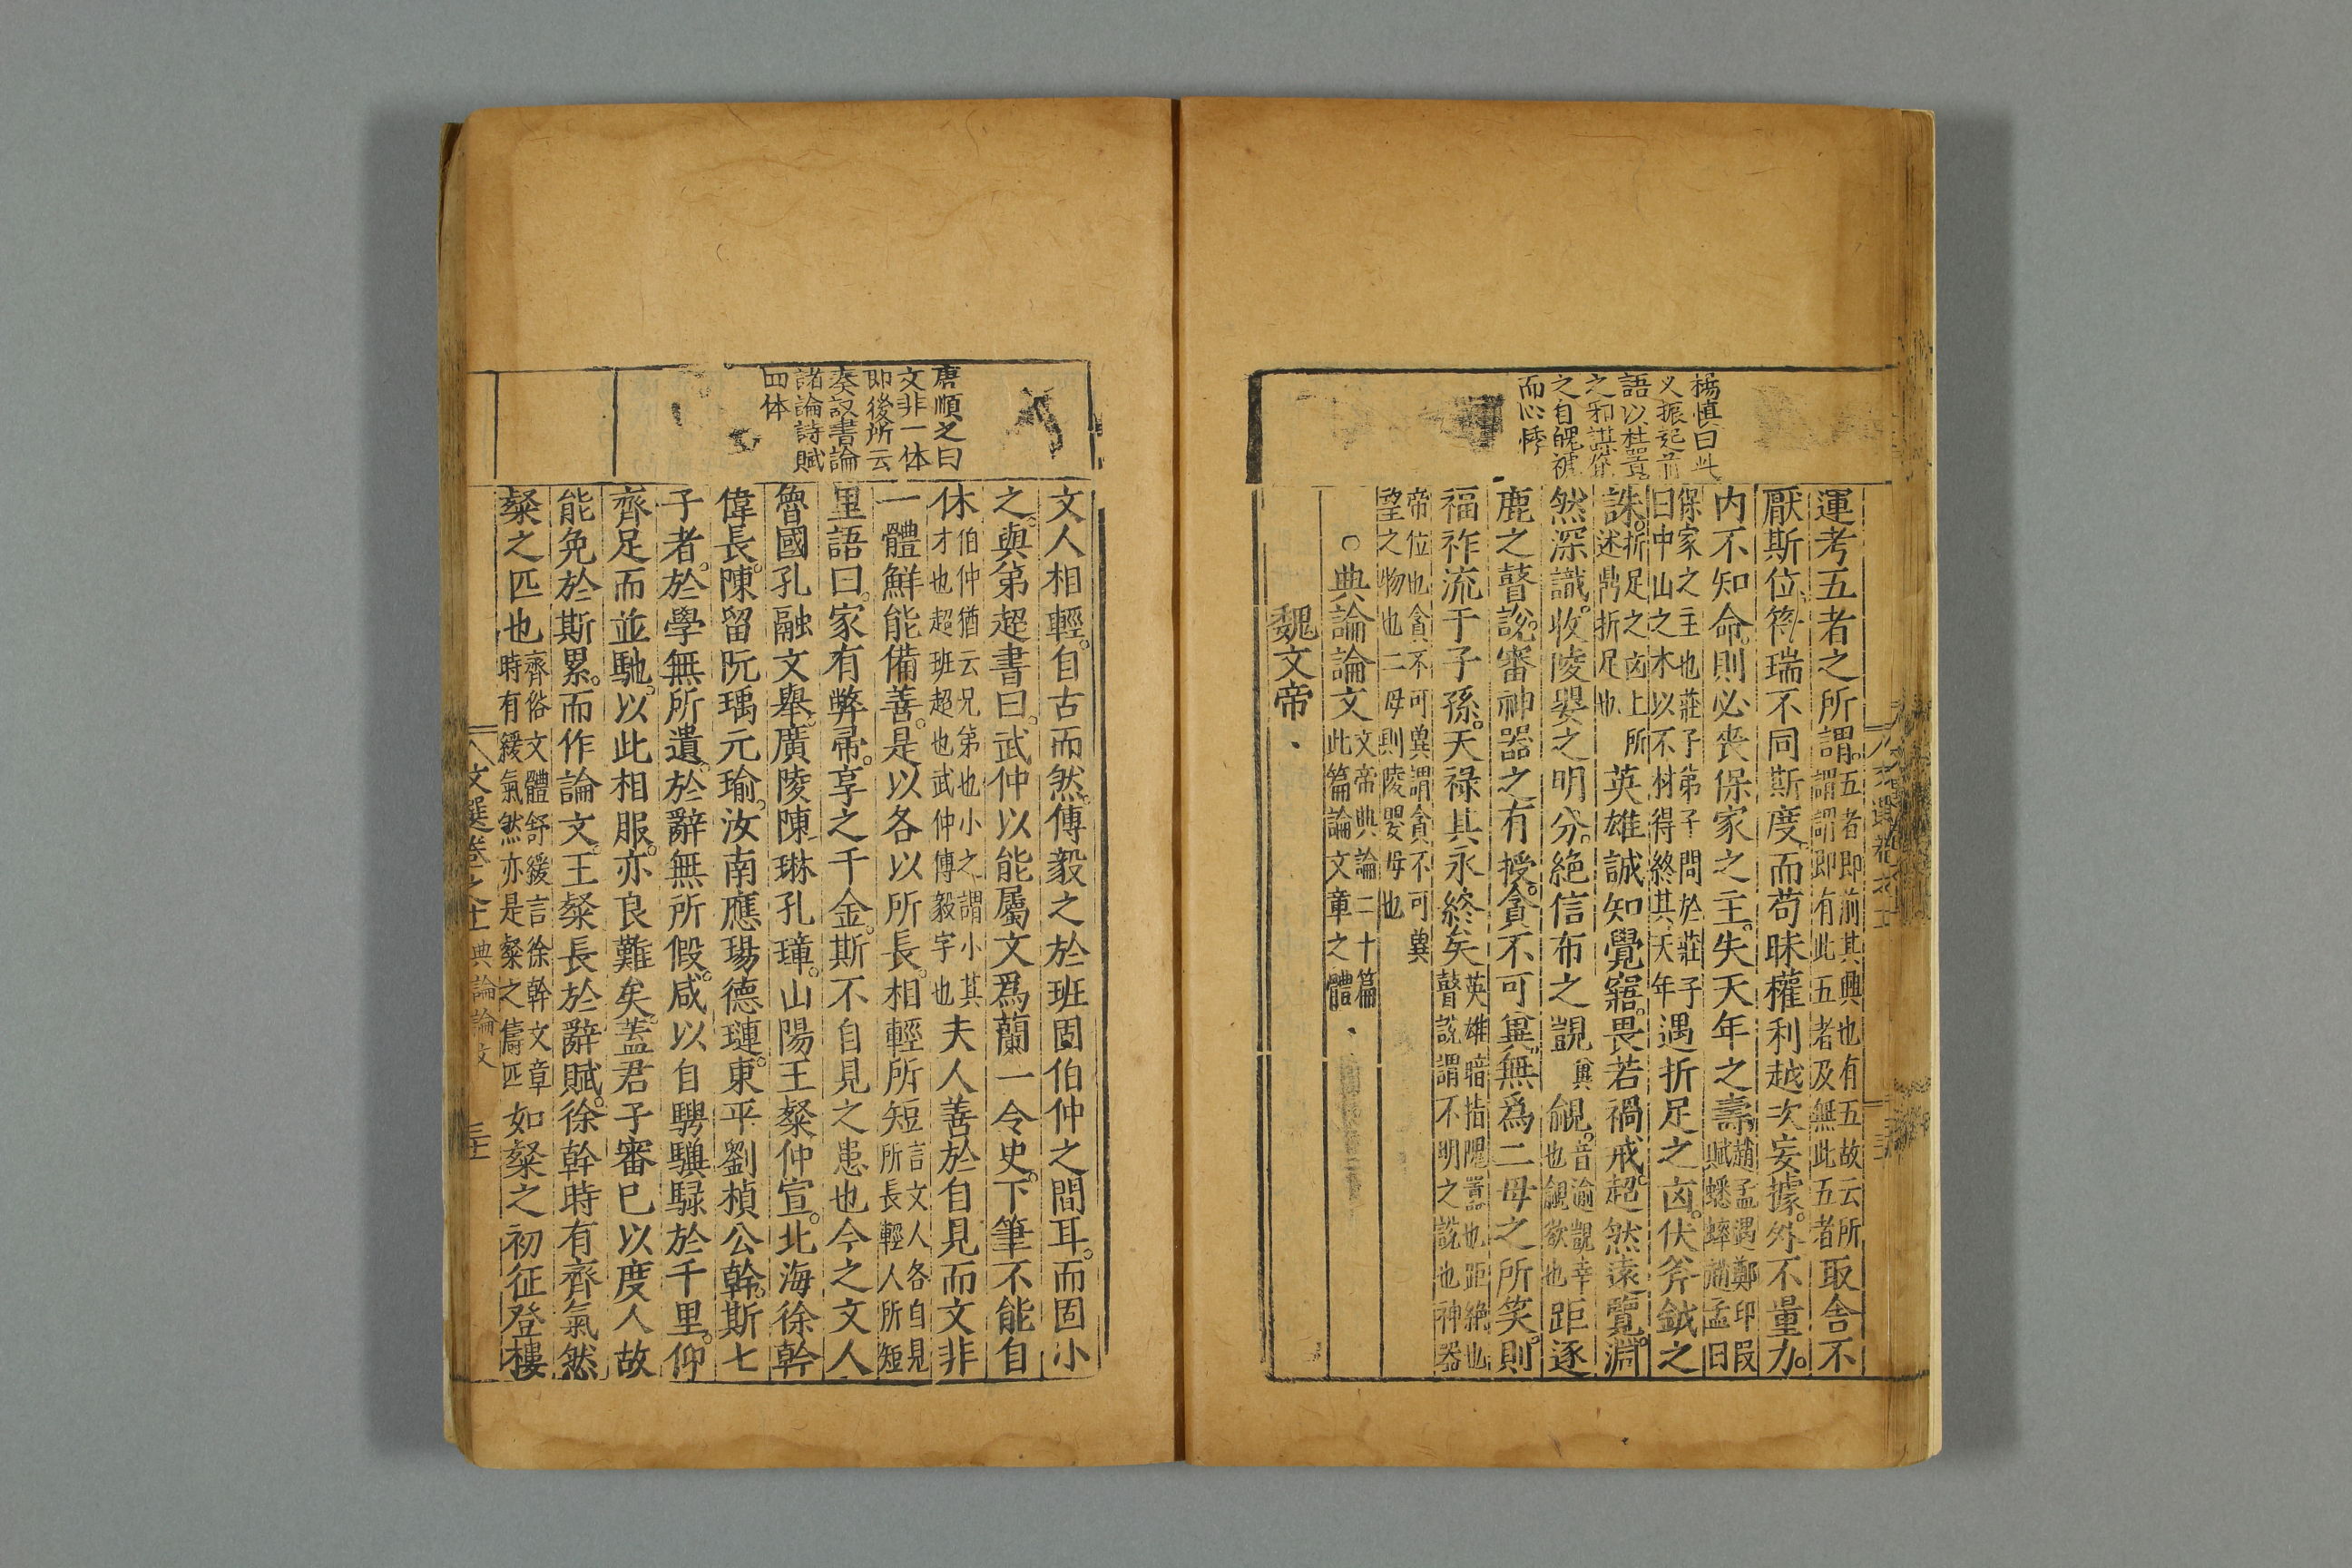 楊慎曰此
又振起前
語以杜置
之邪謀使
之自魄褫
而心悸
運考五者之所謂五者即前其興也有五故云所謂謂即有此五者及無此五者取舍不
厭斯位符瑞不同斯度而苟昧權利越次妄據外不量力
内不知命則必喪保家之主失天年之壽趙孟遇鄭印叚賦蟋蟀趙孟曰
保家之主也莊子弟子問於莊子曰中山之木以不材得終其天年遇折足之凶伏斧鉞之
誅折足之凶上所述鼎折足也英雄誠知覺寤畏若禍戒超然遠覽淵
然深識收陵嬰之明分絶信布之覬兾覦音渝覬幸也覦欲也距逐
鹿之瞽説審神器之有授貪不可兾無爲二母之所笑則
福祚流于子孫天禄其永終矣英雄暗指隗嚣也距絶也瞽説謂不明之説也神器
帝位也貪不可兾謂貪不可兾望之物也二母則陵嬰母也
典論論文文帝典論二十篇此篇論文章之體
魏文帝
唐順之曰
文非一体
即後所云
奏议書論
諸論詩賦
四体
文人相輕自古而然傅毅之於班固伯仲之間耳而固小
之與弟超書曰武仲以能屬文爲蘭一令史下筆不能自
休伯仲猶云兄弟也小之謂小其才也超班超也武仲傅毅字也夫人善於自見而文非
一體鮮能備善是以各以所長相輕所短言文人各自見所長輕人所短
里語曰家有弊帚享之千金斯不自見之患也今之文人
魯國孔融文舉廣陵陳琳孔璋山陽王粲仲宣北海徐幹
偉長陳留阮瑀元瑜汝南應瑒德璉東平劉楨公幹斯七
子者於學無所遺於辭無所假咸以自騁驥騄於千里仰
齊足而並馳以此相服亦良難矣蓋君子審已以度人故
能免於斯累而作論文王粲長於辭賦徐幹時有齊氣然
粲之匹也齊俗文體舒緩言徐幹文章時有緩氣然亦是粲之儔匹如粲之初征登樓
文選卷之十 典論論文